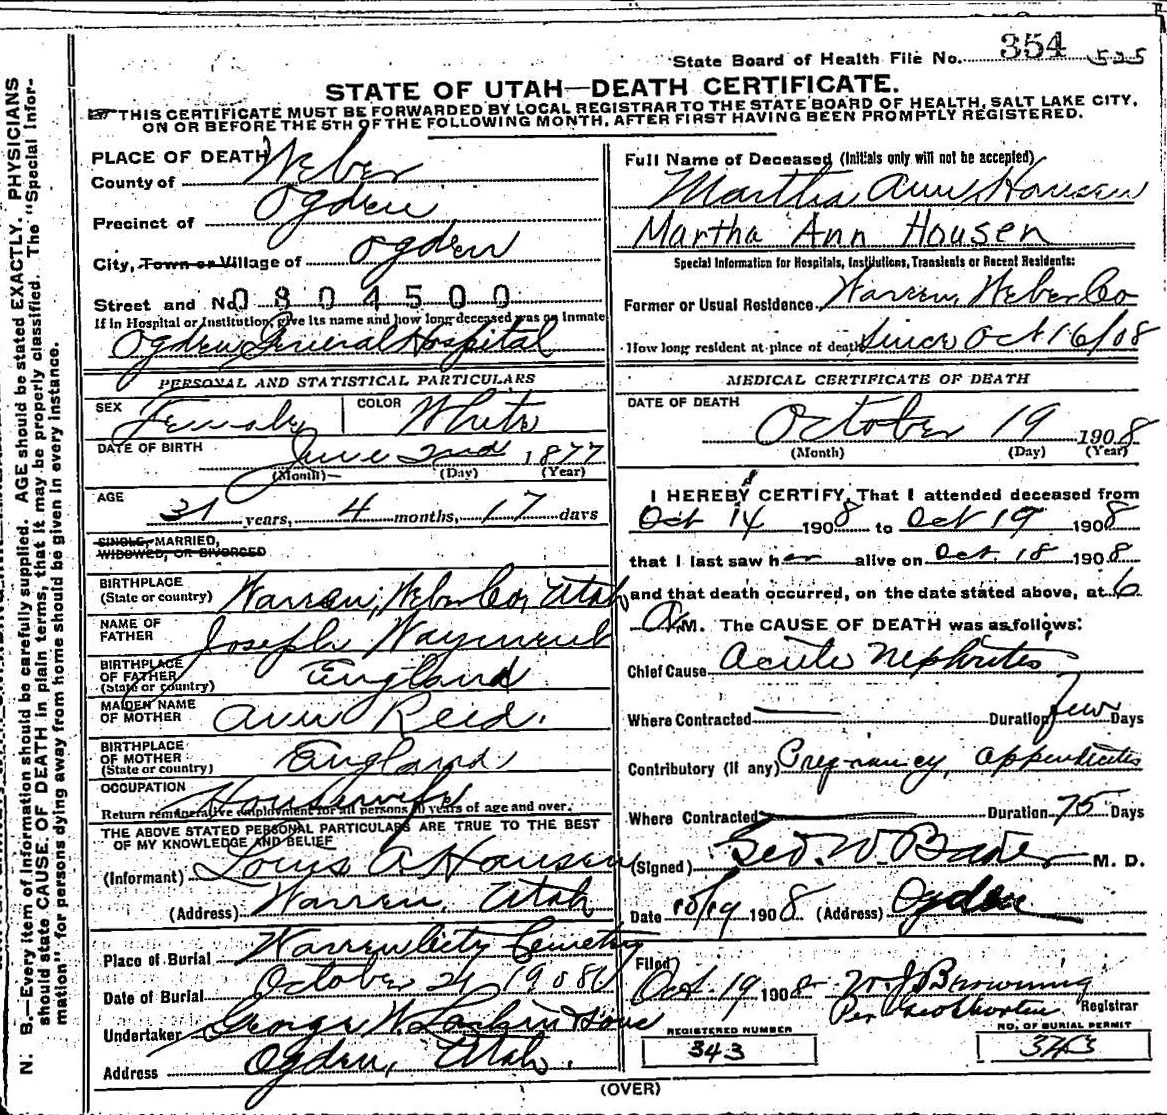 State Board of Health File No. 354 525
STATE OF UTAH—DEATH CERTIFICATE.
THIS CERTIFICATE MUST BE FORWARDED BY LOCAL REGISTRAR TO THE STATE BOARD OF HEALTH, SALT LAKE CITY,
ON OR BEFORE THE 5TH OF THE FOLLOWING MONTH, AFTER FIRST HAVING BEEN PROMPTLY REGISTERED.
PLACE OF DEATH
County of Weber
Precinct of Ogden
City, Town or Village of Ogden
Street and No. 0804500
If in Hospital or Institution, give its name and how long deceased was an Inmate
Ogden General Hospital
PERSONAL AND STATISTICAL PARTICULARS
SEX Female COLOR White
DATE OF BIRTH June 2nd 1877
(Month) (Day) (Year)
AGE 31 years, 4 months, 17 days
SINGLE, MARRIED,
WIDOWED, OR DIVORCED
BIRTHPLACE
(State or country) Warren, Weber Co, Utah
NAME OF
FATHER Joseph Wayment
BIRTHPLACE
OF FATHER
(State or country) England
MAIDEN NAME
OF MOTHER Ann Reid.
BIRTHPLACE
OF MOTHER
(State or country) England
OCCUPATION Housewife
Return remunerative employment for all persons 10 years of age and over.
THE ABOVE STATED PERSONAL PARTICULARS ARE TRUE TO THE BEST
OF MY KNOWLEDGE AND BELIEF
(Informant) Louis A. Hansen
(Address) Warren, Utah
Place of Burial Warren City Cemetery
Date of Burial October 21 1908
Undertaker George W. Larkin Sons
Address Ogden, Utah.
Full Name of Deceased (Initials only will not be accepted)
Martha Ann Hansen
Martha Ann Housen
Special Information for Hospitals, Institutions, Transients or Recent Residents:
Former or Usual Residence Warren, Weber Co
How long resident at place of death Since Oct 16/08
MEDICAL CERTIFICATE OF DEATH
DATE OF DEATH
October 19 1908
(Month) (Day) (Year)
I HEREBY CERTIFY, That I attended deceased from
Oct 14 1908 to Oct 19 1908
that I last saw her alive on Oct. 18 1908
and that death occurred, on the date stated above, at 6
A.M. The CAUSE OF DEATH was as follows:
Chief Cause Acute Nephritis
Where Contracted Duration few Days
Contributory (if any) Pregnancy, Appendicitis
Where Contracted Duration 75 Days
(Signed) Geo. W. Baker M. D.
Date 10/19 1908 (Address) Ogden
Filed
Oct. 19 1908 W. J. Browning
Per Registrar
REGISTERED NUMBER 343
NO. OF BURIAL PERMIT 343
(OVER)
N. B.—Every item of information should be carefully supplied. AGE should be stated EXACTLY. PHYSICIANS
should state CAUSE OF DEATH in plain terms, that it may be properly classified. The "Special Infor-
mation" for persons dying away from home should be given in every instance.